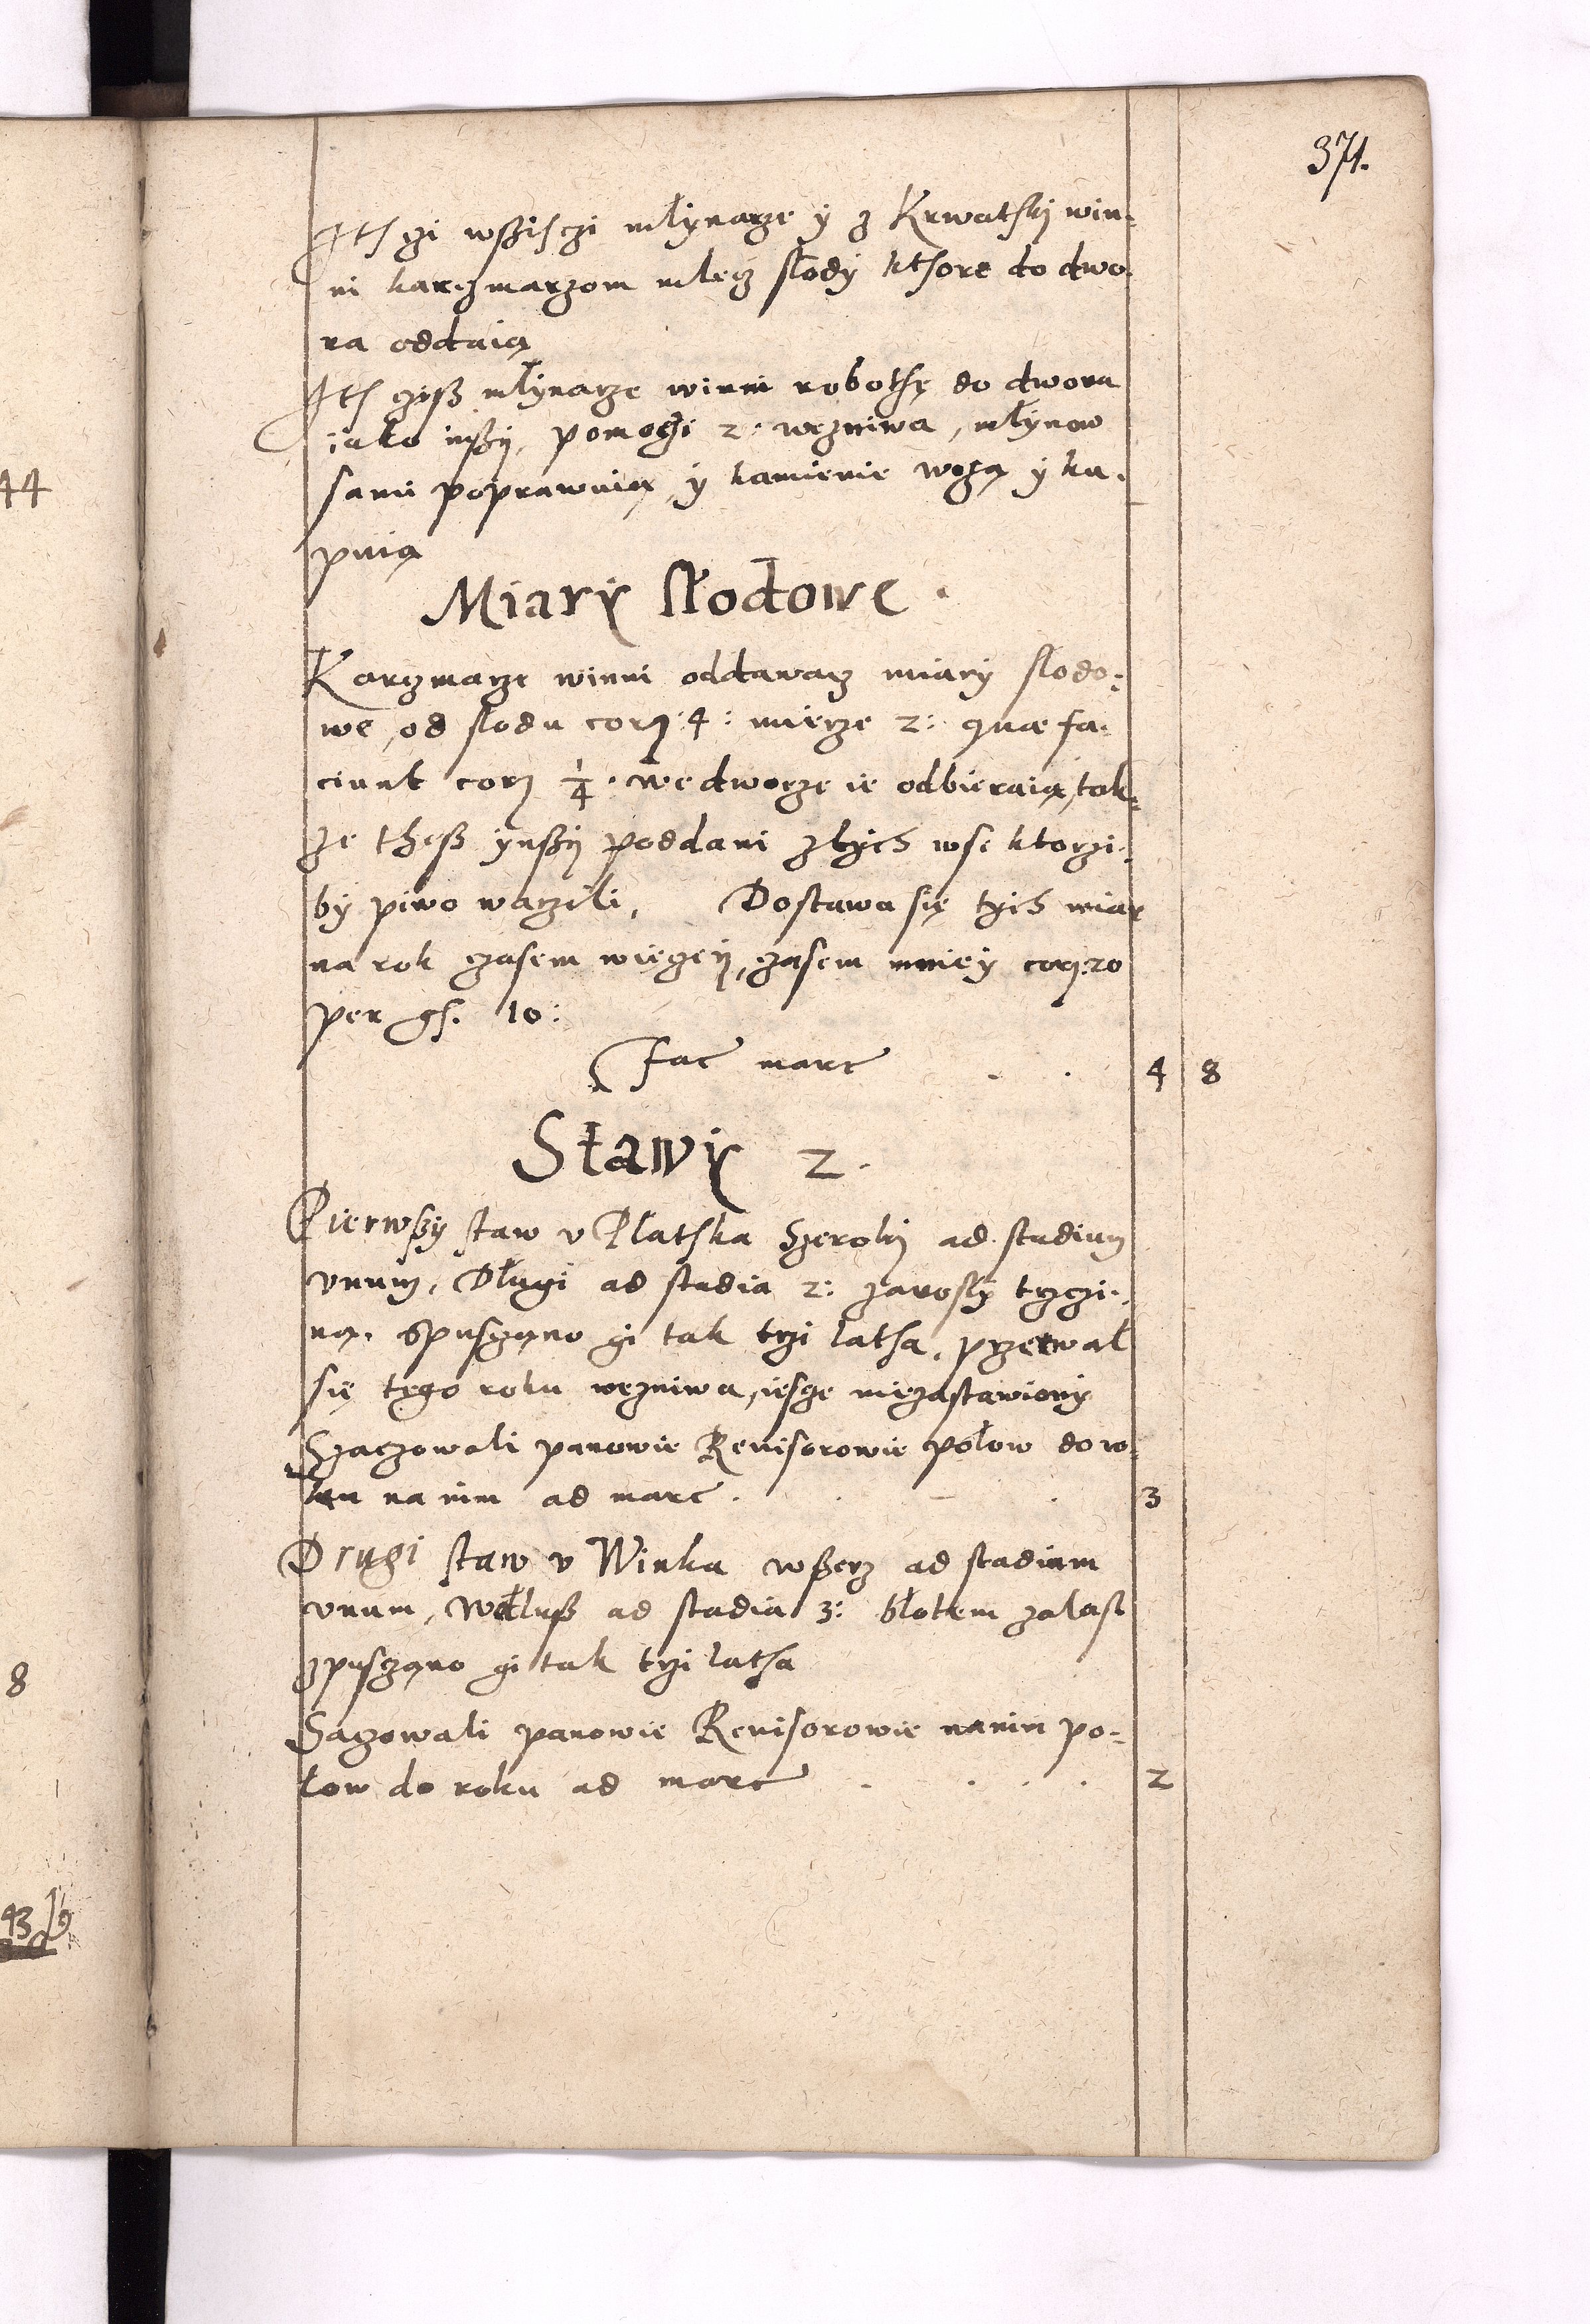 371.
Ith czi wßisczi młynarze y z Krwatski win-
ni karczmarzom mlecz słody kthore do dwo-
ra oddaią
Ith cziß młynarze winni robothę do dwora
iako inßy, pomoczi 2: wezniwa, młynow
sami poprawuią y kamienie wożą y ku-
puią
Miary słodowe.
Karczmarze winni oddawacz miary słodo-
we, od słodu corj 4: mierze 2: quæ fa-
ciunt corj 1/4. we dworze ie odbieraią, tak-
ze theß ynßy poddani z tych wsi ktorzi-
by piwo warzili, Dostawa się tych miar
na rok czasem więczey, czasem mniey corj 20
per gs. 10:
Fac marc . . 4 8
Stawy 2.
Pierwßy staw v Płatska Szeroky ad stadium
vnum, Długi ad stadia 2: zarosły trzczi-
ną. Spusczano gi tak trzi latha, przerwał
się tego roku wezniwa, iescze niezastawiony
Szaczowali panowie Reuisorowie połow do ro-
ku na nim ad marc . . . 3
Drugi staw v Winka wßerz ad stadium
vnum, Wdłuß ad stadia 3: błotem zalasł
zpusczano gi tak trzi latha
Saczowali panowie Reuisorowie na nim po-
łow do roku ad marc . . . . 2
44
8
43